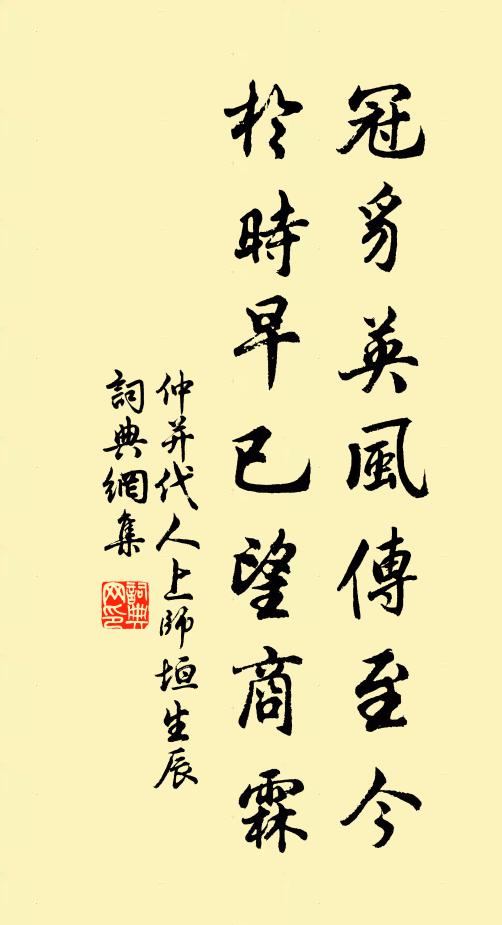 冠豸英風傳至今
於時早已望商霖
仲并代人上師垣生辰
詞典網集
詞典
网印